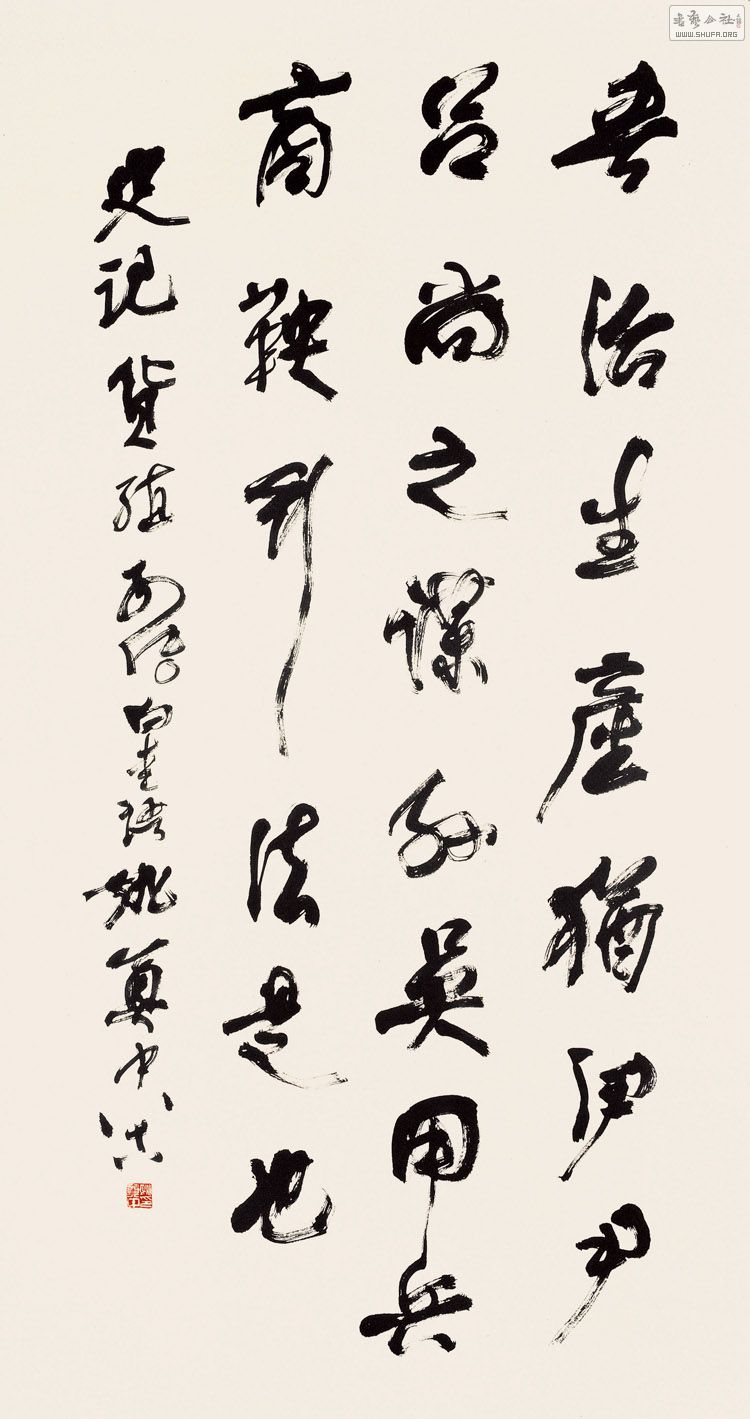 吾治生產猶伊尹
呂尚之謀孫吳用兵
商鞅行法是也
史記貨殖列傳白圭語姚奠中
書藝公社
WWW.SHUFA.ORG